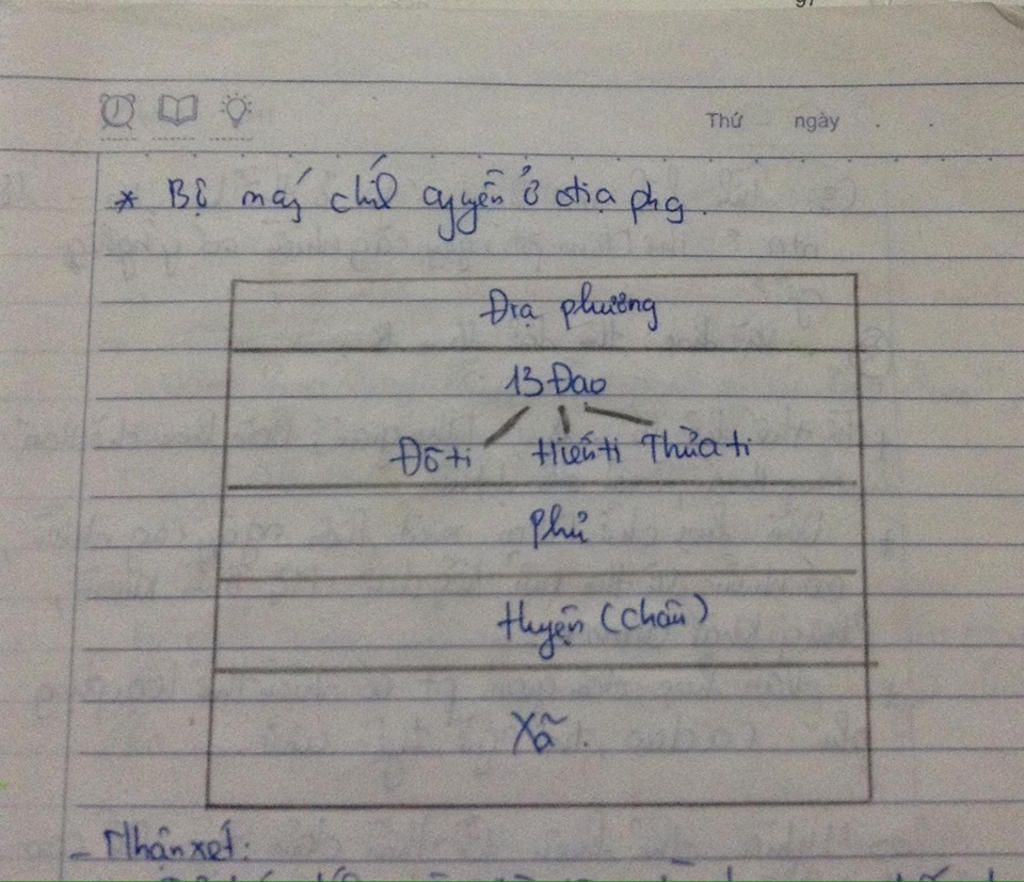 Thứ ngày . .
* Bộ máy chí quyền ở địa phg.
Địa phương
13 Đạo
Đô ti Hiến ti Thừa ti
Phủ
Huyện (châu)
Xã.
- Nhận xét: